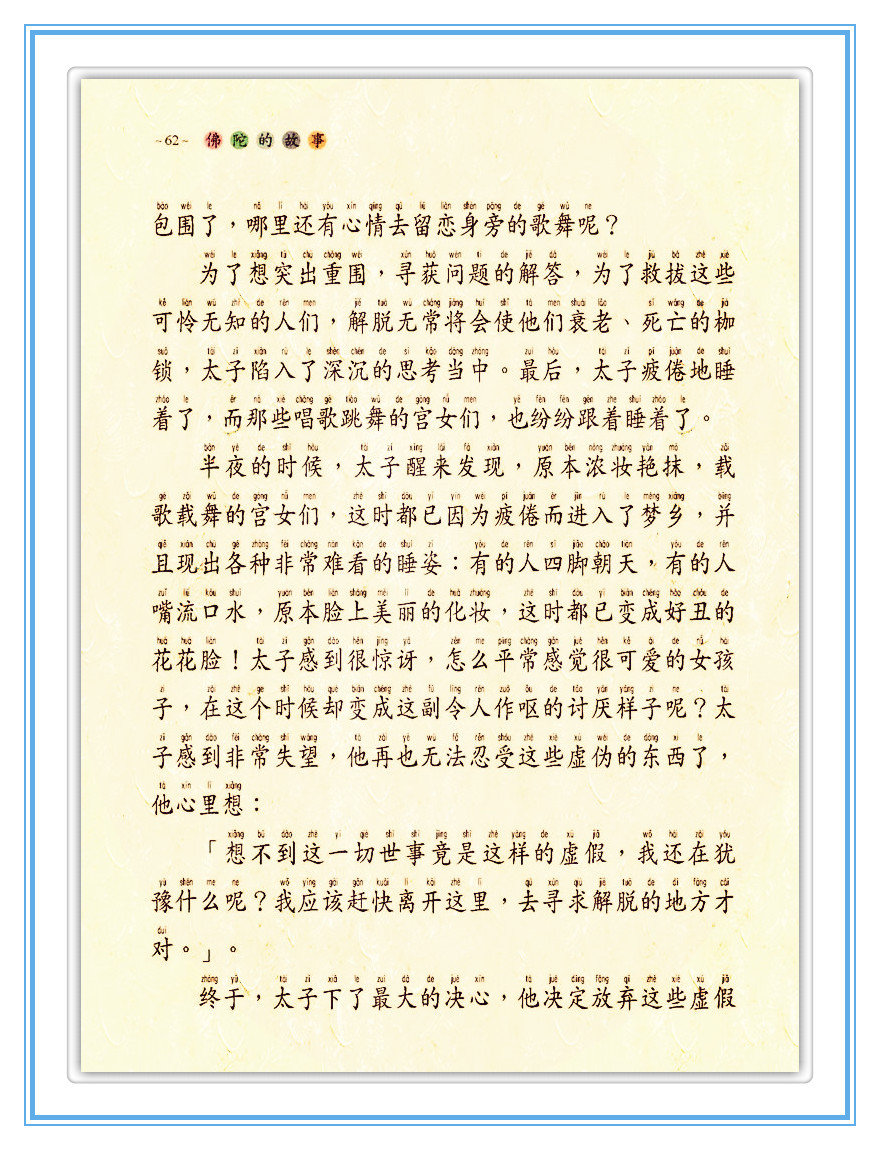 ~62~ 佛陀的故事
包围了，哪里还有心情去留恋身旁的歌舞呢？
为了想突出重围，寻获问题的解答，为了救拔这些
可怜无知的人们，解脱无常将会使他们衰老、死亡的枷
锁，太子陷入了深沉的思考当中。最后，太子疲倦地睡
着了，而那些唱歌跳舞的宫女们，也纷纷跟着睡着了。
半夜的时候，太子醒来发现，原本浓妆艳抹，载
歌载舞的宫女们，这时都已因为疲倦而进入了梦乡，并
且现出各种非常难看的睡姿：有的人四脚朝天，有的人
嘴流口水，原本脸上美丽的化妆，这时都已变成好丑的
花花脸！太子感到很惊讶，怎么平常感觉很可爱的女孩
子，在这个时候却变成这副令人作呕的讨厌样子呢？太
子感到非常失望，他再也无法忍受这些虚伪的东西了，
他心里想：
「想不到这一切世事竟是这样的虚假，我还在犹
豫什么呢？我应该赶快离开这里，去寻求解脱的地方才
对。」。
终于，太子下了最大的决心，他决定放弃这些虚假